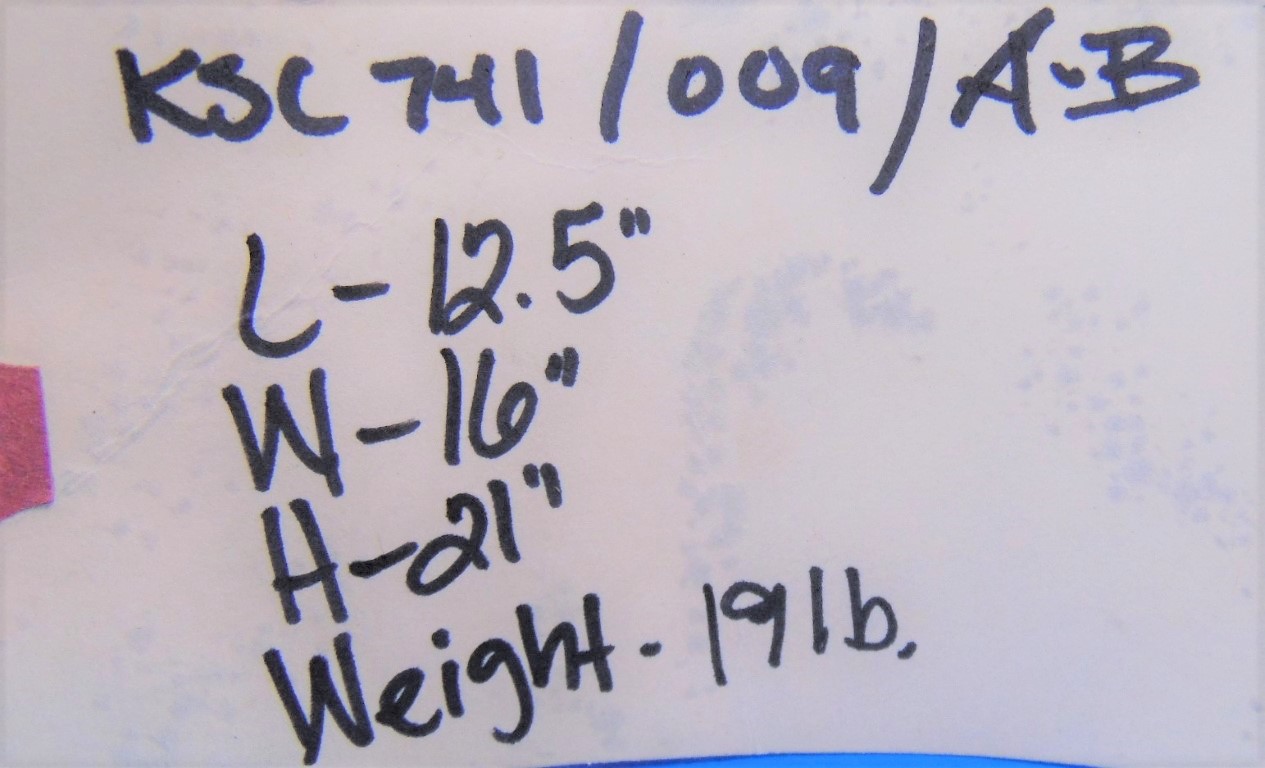 KSC 741/009/A-B
L-12.5"
W-16"
H-21"
Weight-19lb.